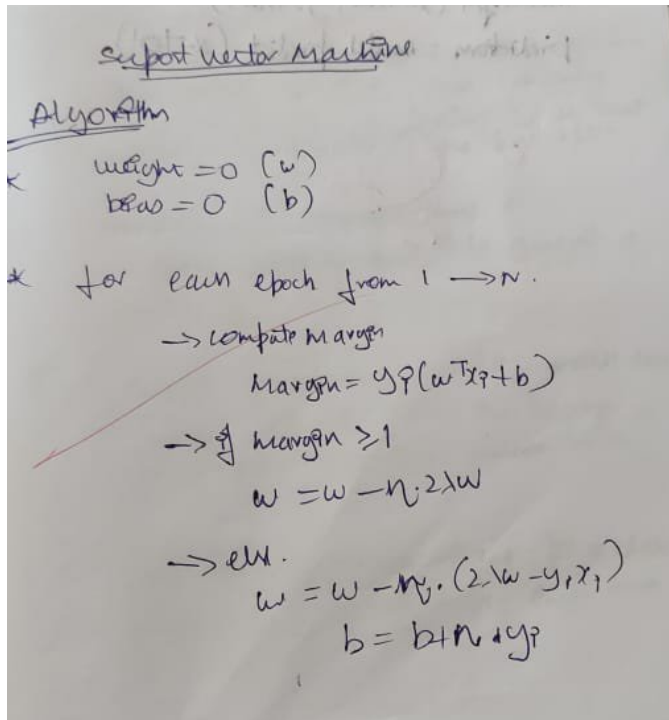 Suport Vector Machine
Algorithm
* weight = 0 (w)
bias = 0 (b)
* for each epoch from 1 → N.
→ compute margin
Margin = yi(wᵀxi + b)
→ if margin ≥ 1
w = w − η.2λw
→ else.
w = w − η.(2λw − yixi)
b = b + η.yi